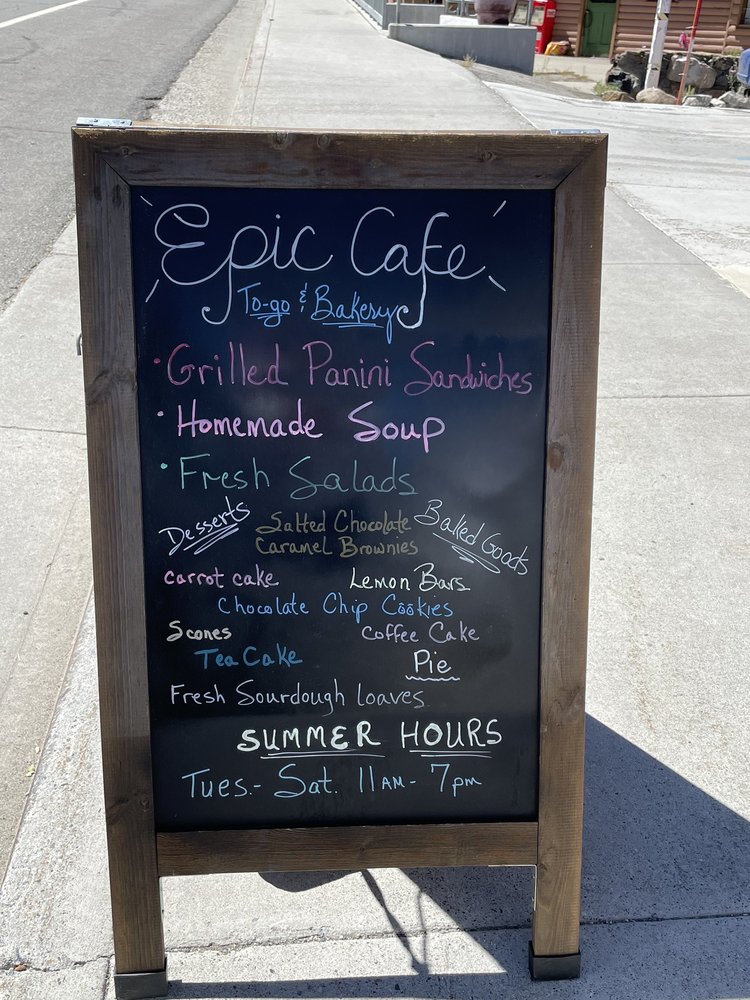 Epic Cafe
To-go & Bakery
· Grilled Panini Sandwiches
· Homemade Soup
· Fresh Salads
Desserts
Salted Chocolate
Caramel Brownies
Baked Goods
carrot cake
Lemon Bars
Chocolate Chip Cookies
Scones
Coffee Cake
Tea Cake
Pie
Fresh Sourdough loaves
SUMMER HOURS
Tues.- Sat. 11AM- 7pm